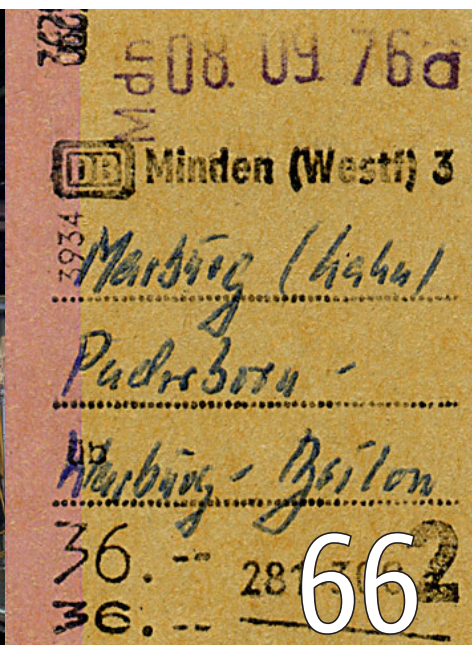 Mdn 08. 09. 76a
DB Minden (Westf) 3
3934
Marburg (Lahn)
Paderborn -
üb
Warburg - Brilon
36.--
36.--
281
2
66